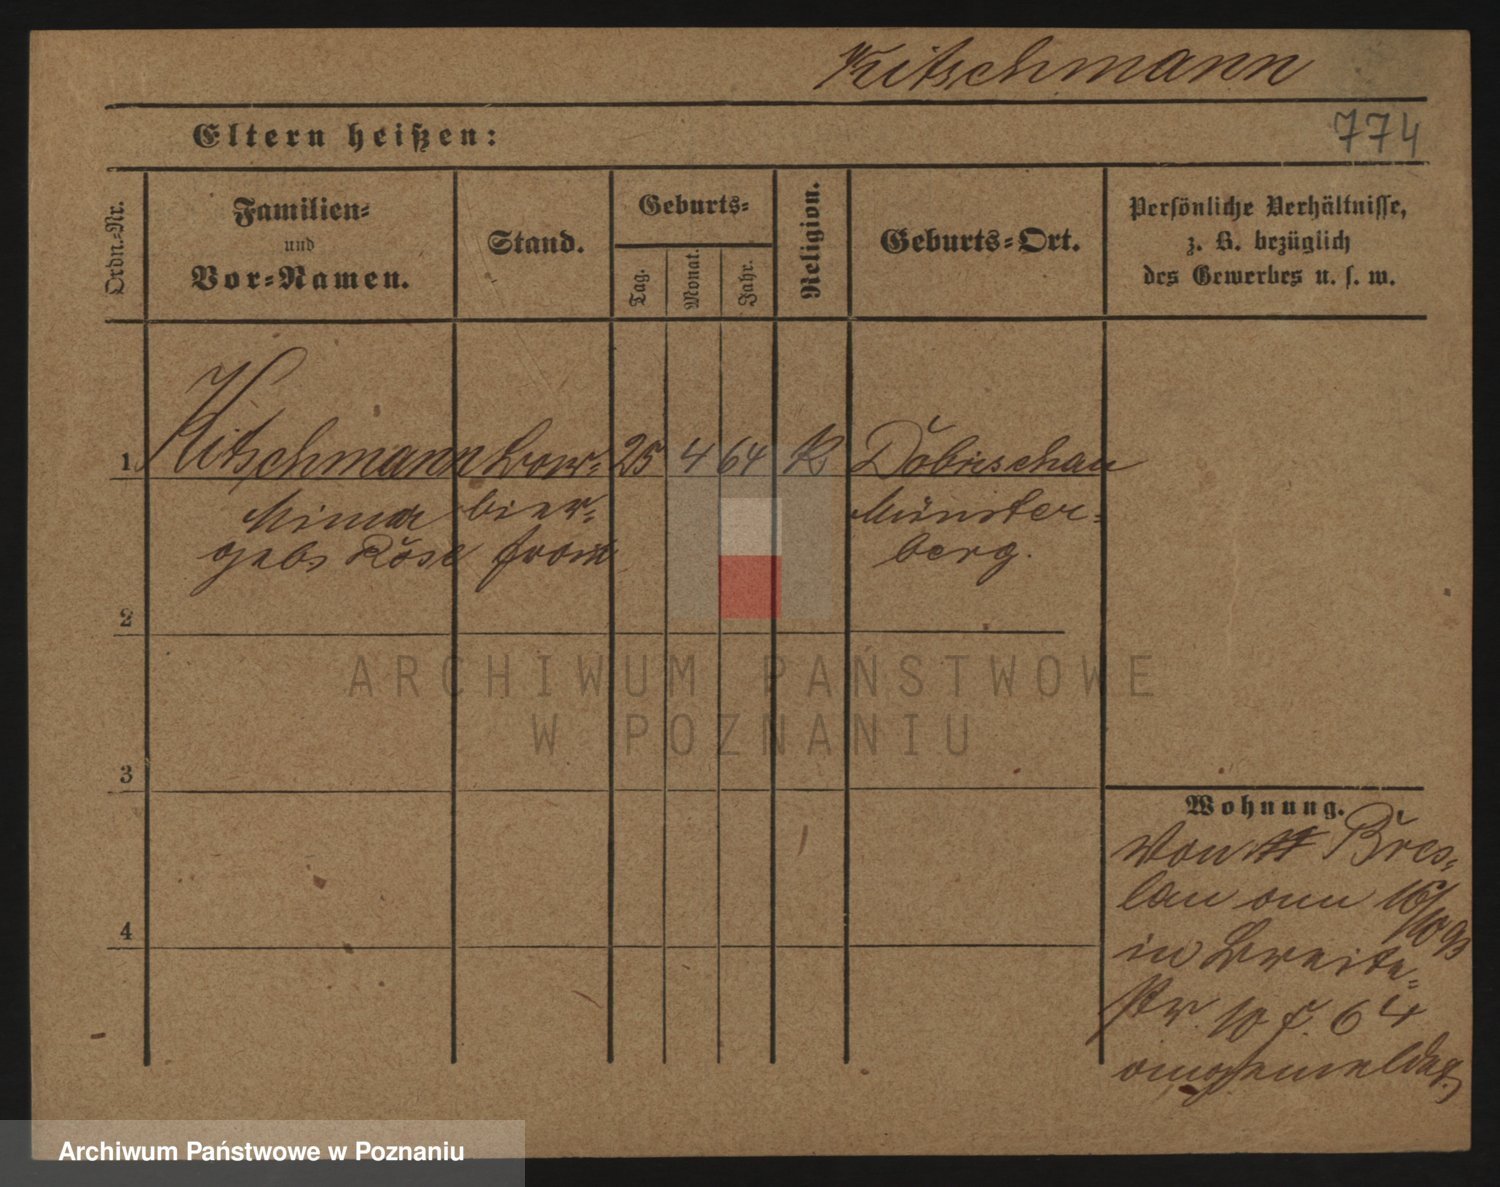 Kitschmann
774
Eltern heißen:
Ordn.-Nr.
Familien-
und
Vor-Namen.
Stand.
Geburts-
Tag.
Monat.
Jahr.
Religion.
Geburts-Ort.
Persönliche Verhältnisse,
z. B. bezüglich
des Gewerbes u. s. w.
1
Kitschmann
Minna
gebs Röse
bier-
frau
25
4
64
K
Dobrischau
Münster-
berg.
2
3
4
Wohnung.
von Bres-
lau am 16/10 93
in Breite-
str 10 f. 64
angemeldet
ARCHIWUM PAŃSTWOWE
W POZNANIU
Archiwum Państwowe w Poznaniu